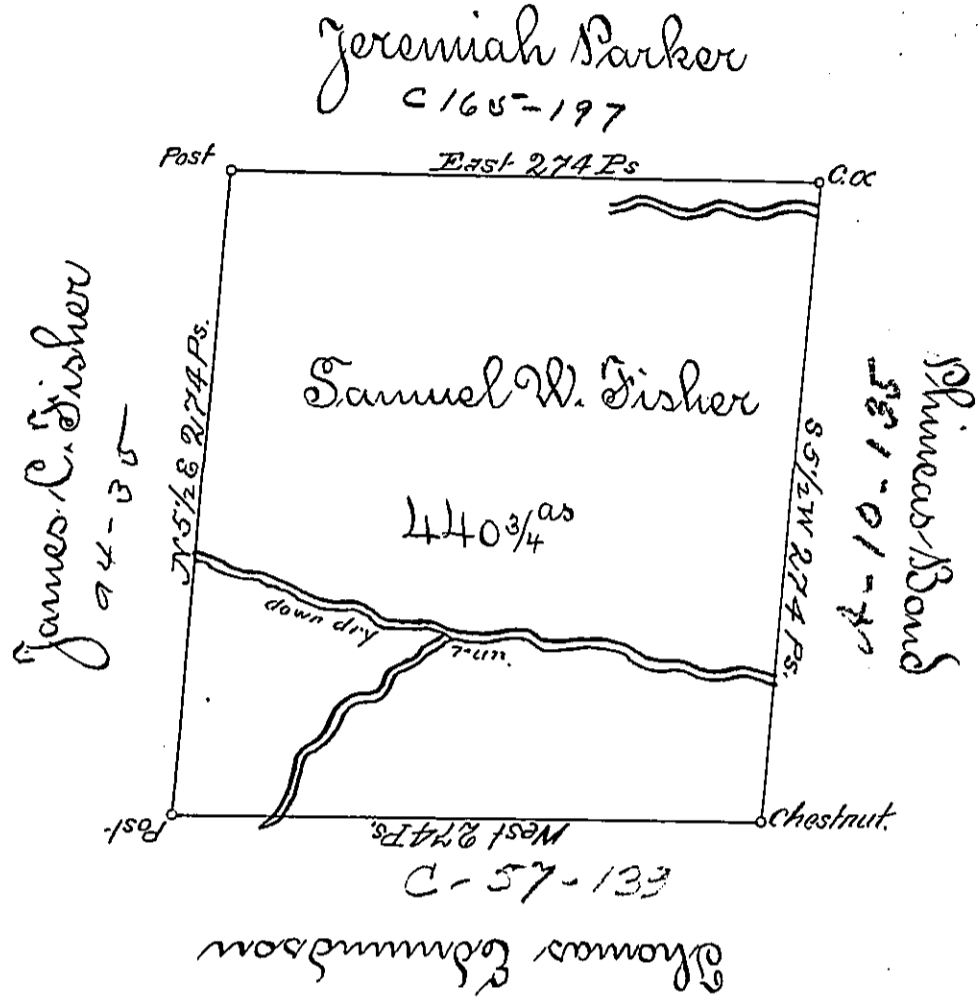 Jeremiah Parker
C 165-197
Post
East 274 Ps
C.oc
James C. Fisher
94-35
N 5 1/2 E 274 Ps.
Samuel W. Fisher
440 3/4 as
S 5 1/2 W 274 Ps.
Phineas Bond
10-185
down dry
run.
Post
West 274 Ps.
Chestnut.
C-57-133
Thomas Edmundson